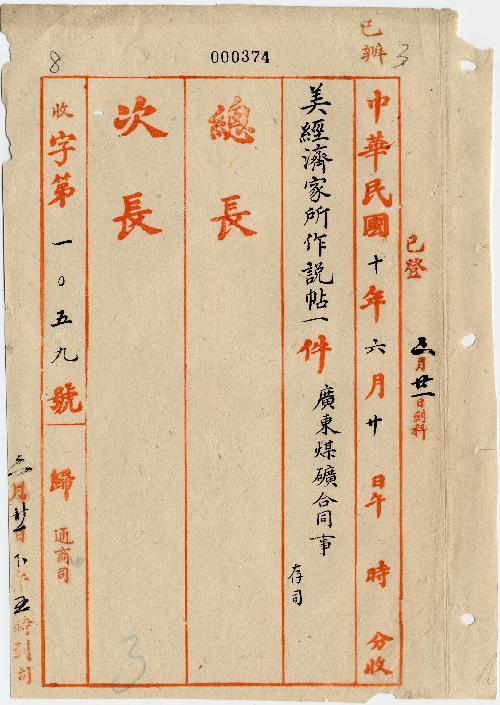 000374
已辦
3
8
已登
六月廿一日到科
中華民國十年六月廿日午時分收
美經濟家所作説帖一件 廣東煤礦合同事
存司
總長
次長
收字第一〇五九號 歸通商司
六月廿一日下午五時到司
3